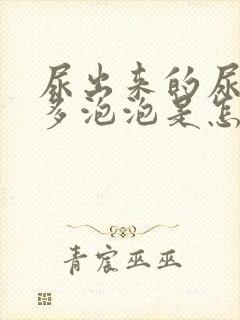 尿出来的尿
多泡泡是怎
青宸巫巫